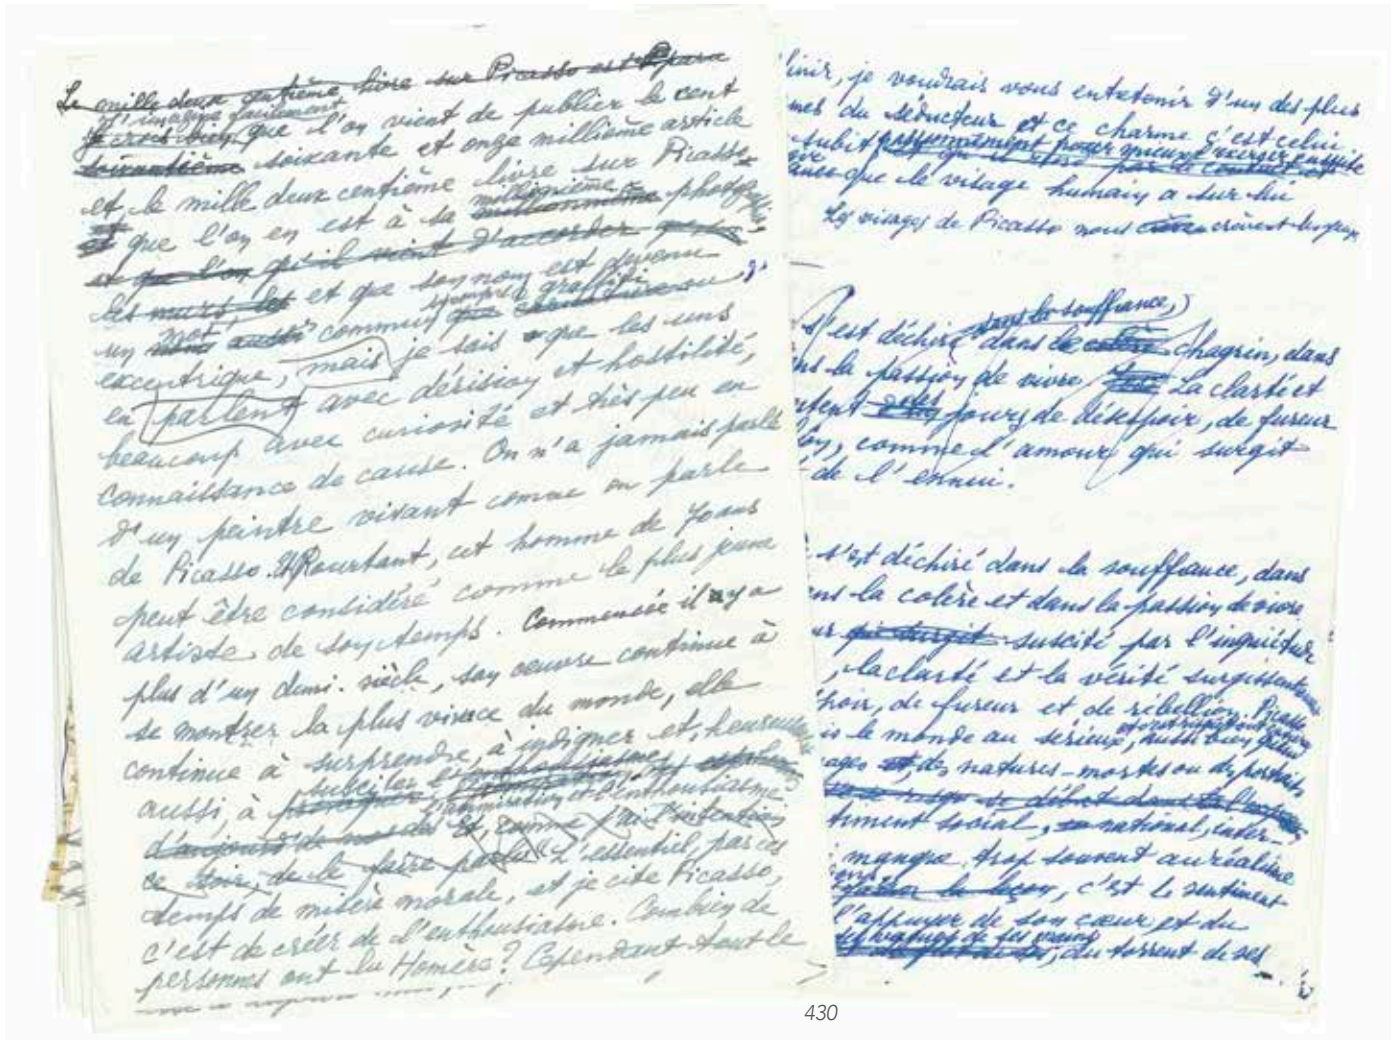 Le mille deux centième livre sur Picasso est paru
J'imagine facilement
je crois bien que l'on vient de publier le cent
soixantième soixante et onze millième article
et le mille deux centième livre sur Picasso
et que l'on en est à sa millionième photographie
et que l'on qu'il vient d'accorder
les murs les et que son nom est devenu
un mot aussi commun graffiti
excentrique, mais je sais que les uns
en parlent avec dérision et hostilité,
beaucoup avec curiosité et très peu en
connaissance de cause. On n'a jamais parlé
d'un peintre vivant comme on parle
de Picasso. Et Pourtant, cet homme de 70 ans
peut être considéré comme le plus jeune
artiste de son temps. Commencée il y a
plus d'un demi-siècle, son œuvre continue à
se montrer la plus vivace du monde, elle
continue à surprendre, à indigner et, heureusement
aussi, à susciter l'admiration et l'enthousiasme
et, comme j'ai l'intention
ce soir, de le faire L'essentiel, par ces
temps de misère morale, et je cite Picasso,
c'est de créer de l'enthousiasme. Combien de
personnes ont lu Homère? Cependant tout le
finir, je voudrais vous entretenir d'un des plus
mes du séducteur et ce charme c'est celui
subit
que le visage humain a sur lui
Les visages de Picasso nous crèvent les yeux
dans la souffrance,
s'est déchiré dans le colère chagrin, dans
ns la passion de vivre La clarté et
des jours de désespoir, de fureur
comme l'amour qui surgit
de l'ennui.
s'est déchiré dans la souffrance, dans
ans la colère et dans la passion de vivre
ur qui surgit suscité par l'inquiétude
, la clarté et la vérité surgissent
oir, de fureur et de rébellion. Picasso
is le monde au sérieux, aussi bien
ages et, des natures-mortes ou des portraits
timent social, national, inter-
manque trop souvent au réalisme
la leçon, c'est le sentiment
l'appuyer de son cœur et du
, du torrent de ses
430